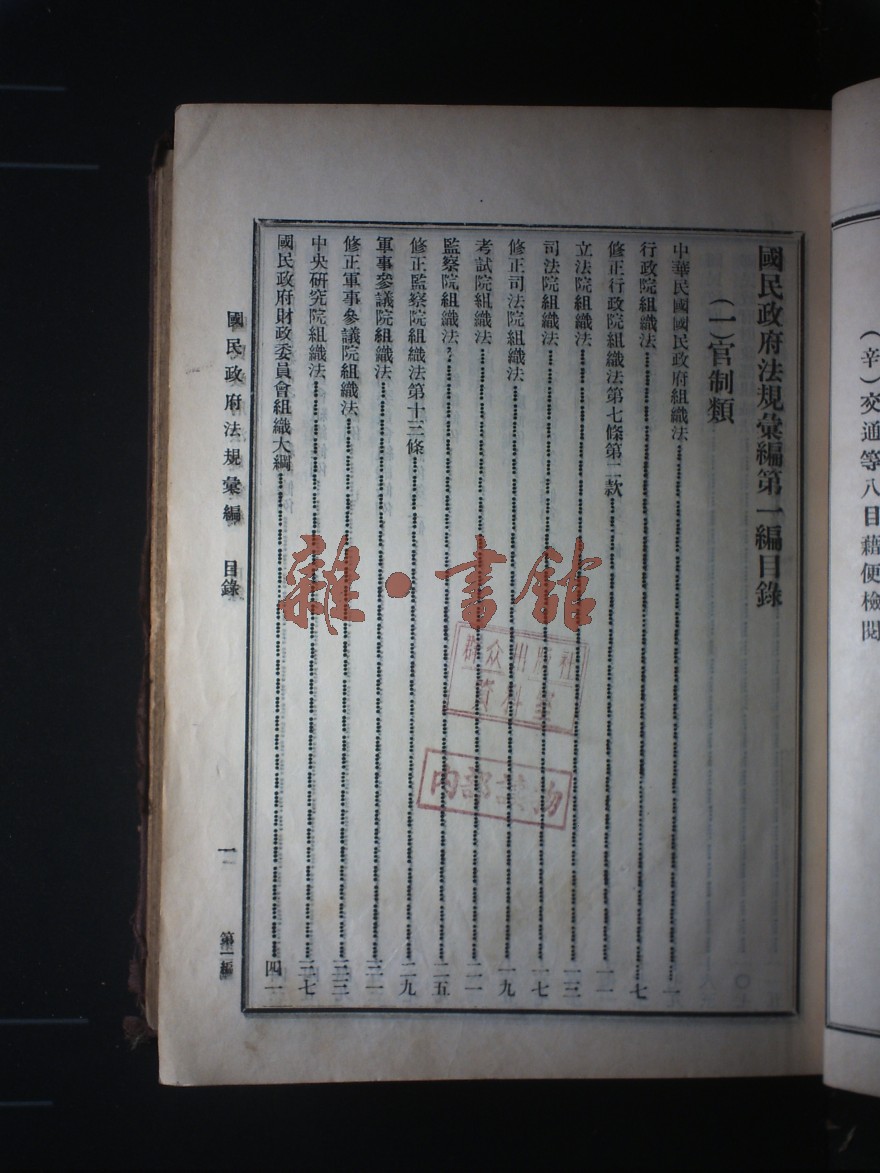 國民政府法規彙編第一編目錄
（一）官制類
中華民國國民政府組織法……一
行政院組織法……七
修正行政院組織法第七條第二款……一一
立法院組織法……一三
司法院組織法……一七
修正司法院組織法……一九
考試院組織法……二一
監察院組織法……二五
修正監察院組織法第十三條……二九
軍事參議院組織法……三一
修正軍事參議院組織法……三三
中央研究院組織法……三七
國民政府財政委員會組織大綱……四一
國民政府法規彙編 目錄
一 第一編
（辛）交通等八目藉便檢閱
雜·書館
群众出版社
資料室
内部讀物